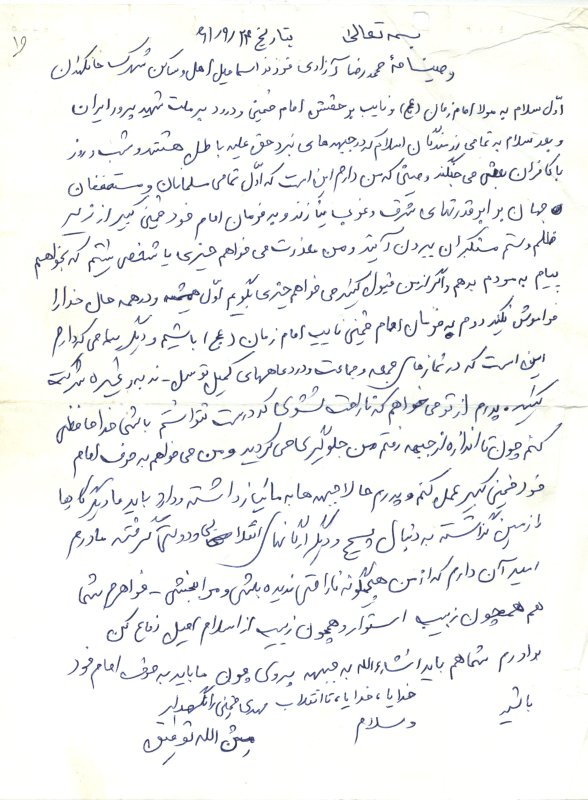 ۱۵
بسمه تعالی بتاریخ ۶۱/۹/۲۴
وصیتنامهٔ محمدرضا آزادی فرزند اسماعیل اهل و ساکن شهرک خانکهدان
اوّل سلام به مولا امام زمان (عج) و نایب بر حقش امام خمینی و درود بر ملت شهید پرور ایران
و بعد سلام به تمامی رزمندگان اسلام که در جبهه های نبرد حق علیه باطل هستند و شب و روز
با کافران بعثی می جنگند وصیتی که من دارم این است که اوّل تمامی مسلمانان و مستضعفان
جهان بر ابر قدرتهای شرق و غرب بتازند و به فرمان امام خود خمینی کبیر از زیر
ظلم و ستم مستکبران بیرون آیند و من معذرت می خواهم چیزی یا شخصی نیستم که بخواهم
پیام به مردم بدهم و اگر از من قبول کنید می خواهم چیزی بگویم اوّل همیشه و در همه حال خدا را
فراموش نکنید دوم به فرمان امام خمینی نایب امام زمان (عج) باشیم و دیگر پیامی که دارم
این است که در نمازهای جمعه و جماعت و در دعاهای کمیل توسل - ندبه و غیره شرکت
کنید. پدرم از تو می خواهم که ناراحت نشوی که درست نتوانستم با شما خداحافظی
کنم چون تا اندازه از جبهه رفتن من جلوگیری می کردید و من می خواهم به حرف امام
خود خمینی کبیر عمل کنم و پدرم حالا جبهه ها به ما نیاز داشته و دارد باید ما دیگر کارها
را زمین گذاشته به دنبال بسیج و دیگر ارگانهای انقلابی و دولتی گرفته مادرم
امید آن دارم که از من هیچگونه ناراحتی ندیده باشی و مرا ببخشی - خواهرم شما
هم همچون زینب استوار و همچون زینب از اسلام اصیل دفاع کن
برادرم شما هم باید انشاءالله به جبهه بروی چون ما باید به حرف امام خود
باشیم خدایا، خدایا، تا انقلاب مهدی خمینی را نگهدار
والسلام
من الله توفیق